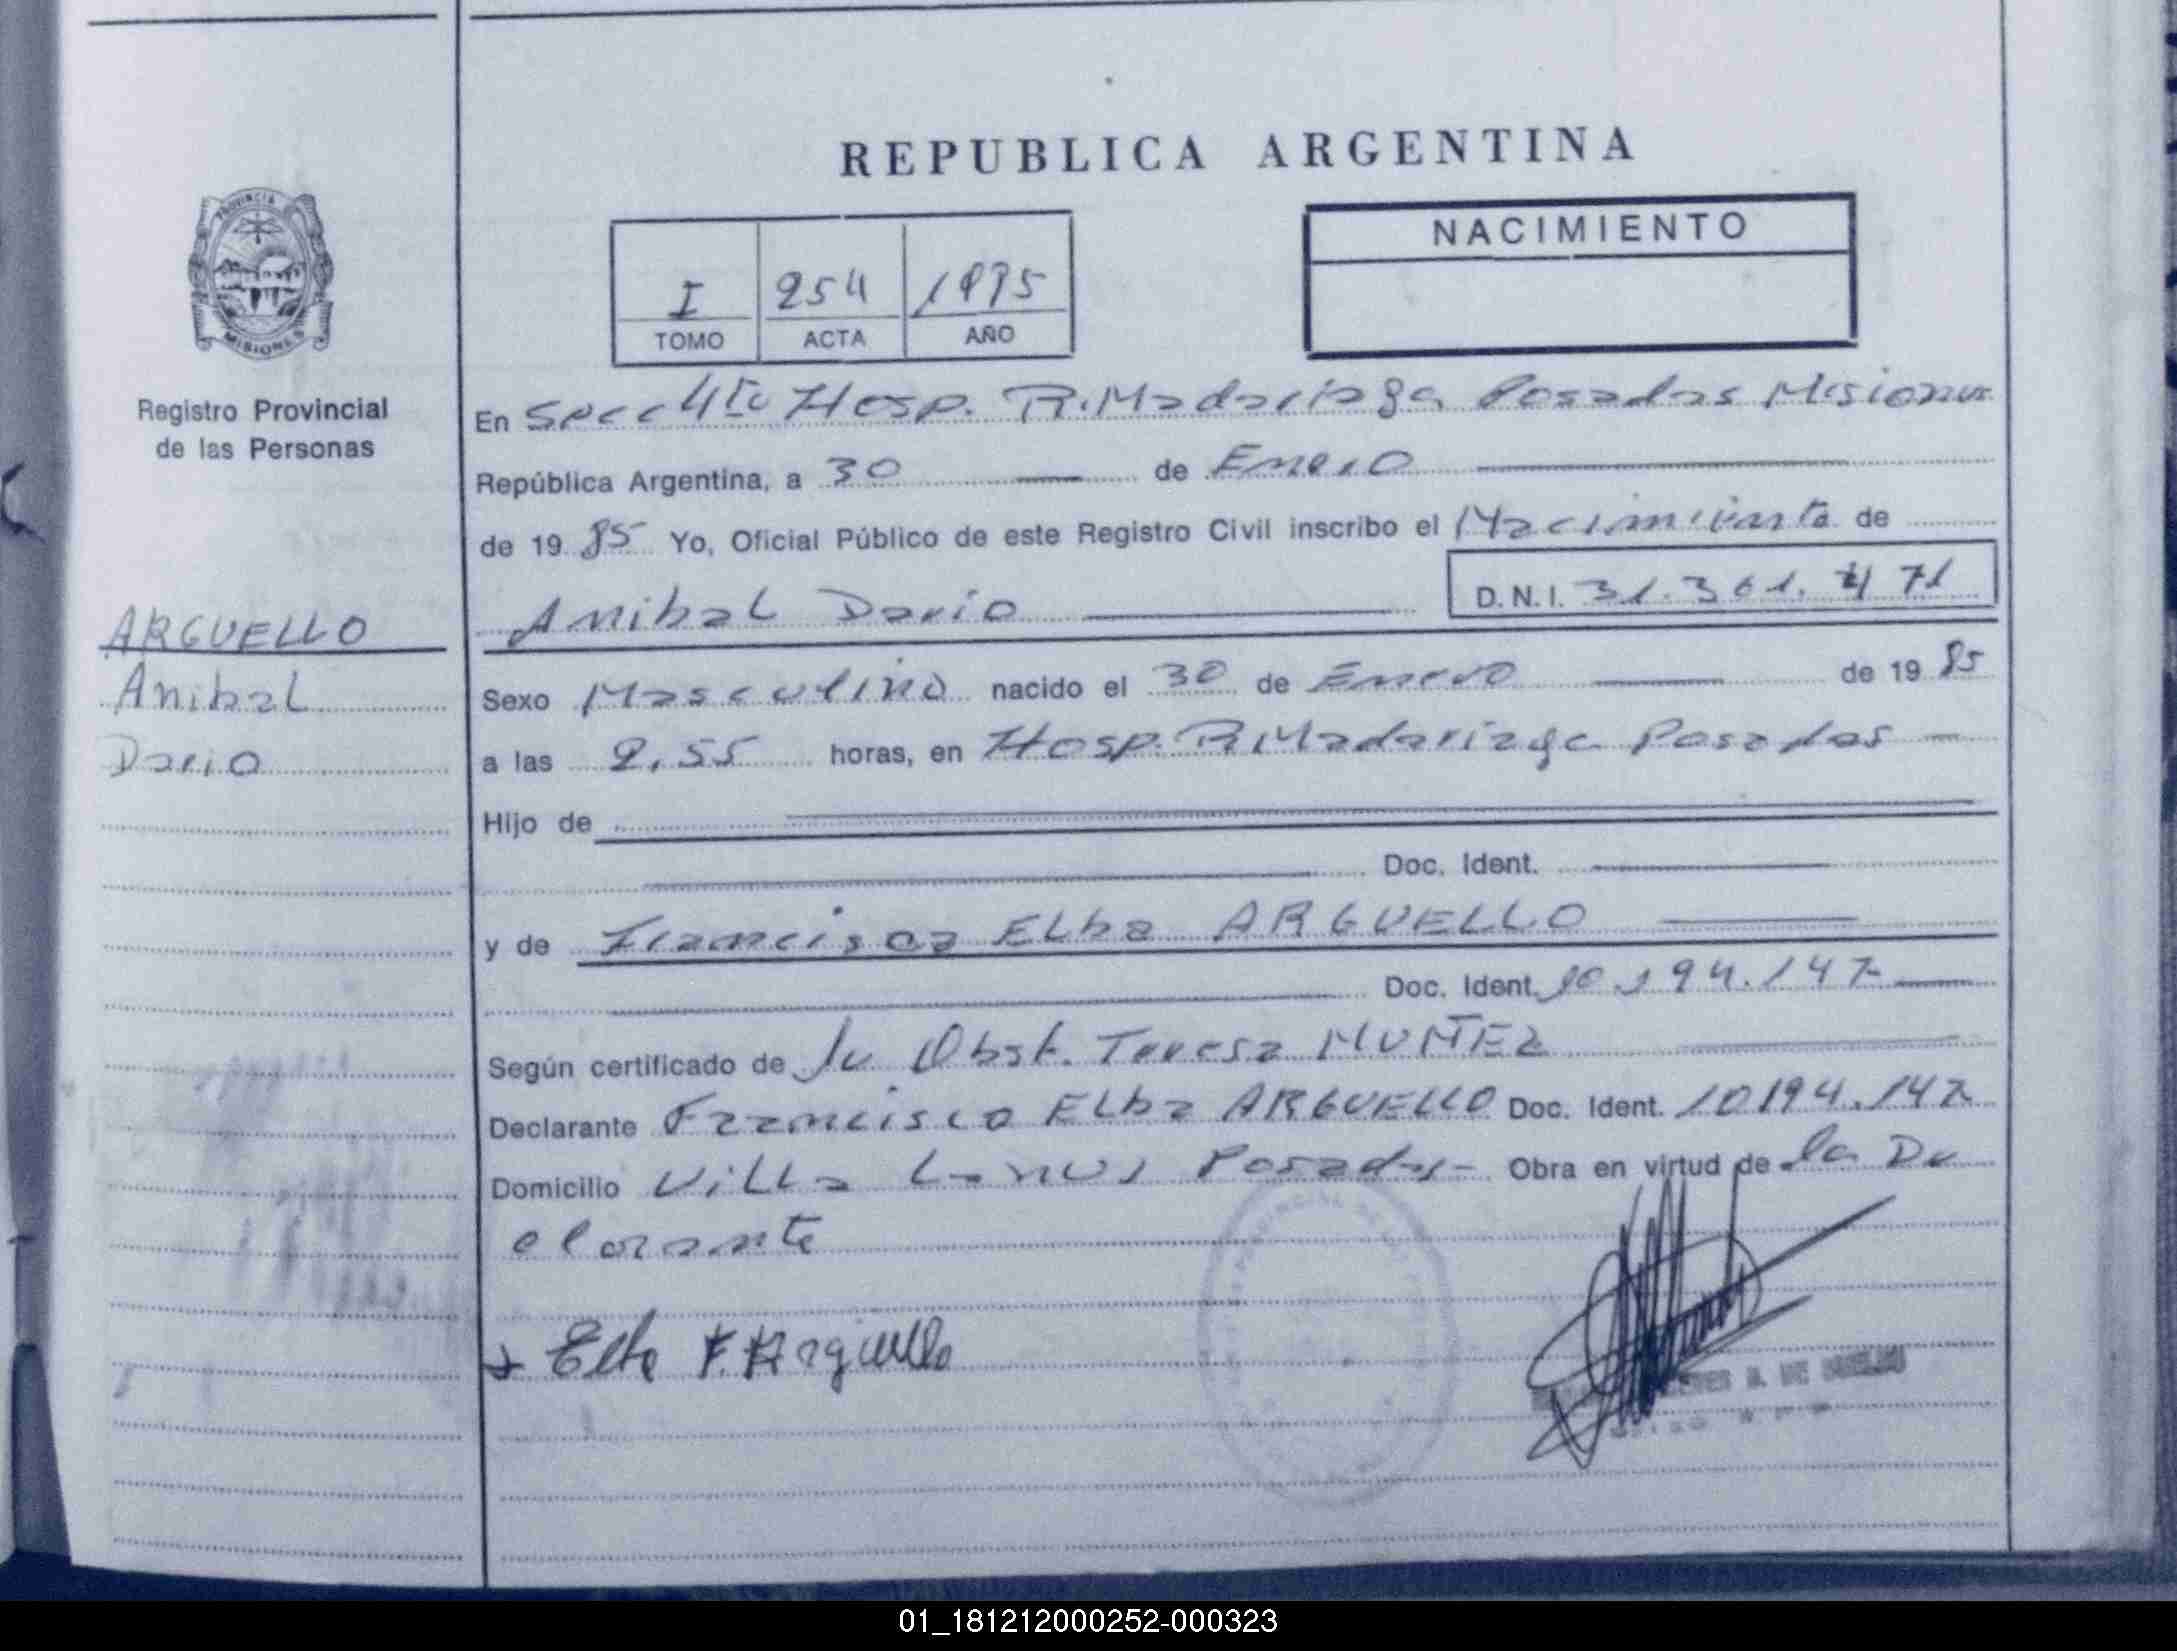 REPUBLICA ARGENTINA
PROVINCIA
MISIONES
Registro Provincial
de las Personas
NACIMIENTO
I 254 1985
TOMO ACTA AÑO
En Secc 4ta Hosp. R. Madariaga Posadas Misiones
República Argentina, a 30 de Enero
de 19 85 Yo, Oficial Público de este Registro Civil inscribo el Nacimiento de
Anibal Dario D.N.I. 31.361.471
ARGUELLO
Anibal
Dario
Sexo Masculino nacido el 30 de Enero de 19 85
a las 2,55 horas, en Hosp. R. Madariaga Posadas
Hijo de
Doc. Ident.
y de Francisca Elba ARGUELLO
Doc. Ident. 10.194.147
Según certificado de la Obst. Teresa MUÑEZ
Declarante Francisca Elba ARGUELLO Doc. Ident. 10194.147
Domicilio Villa Lanus Posadas - Obra en virtud de la De
clarante
Elba F. Arguello
01_181212000252-000323